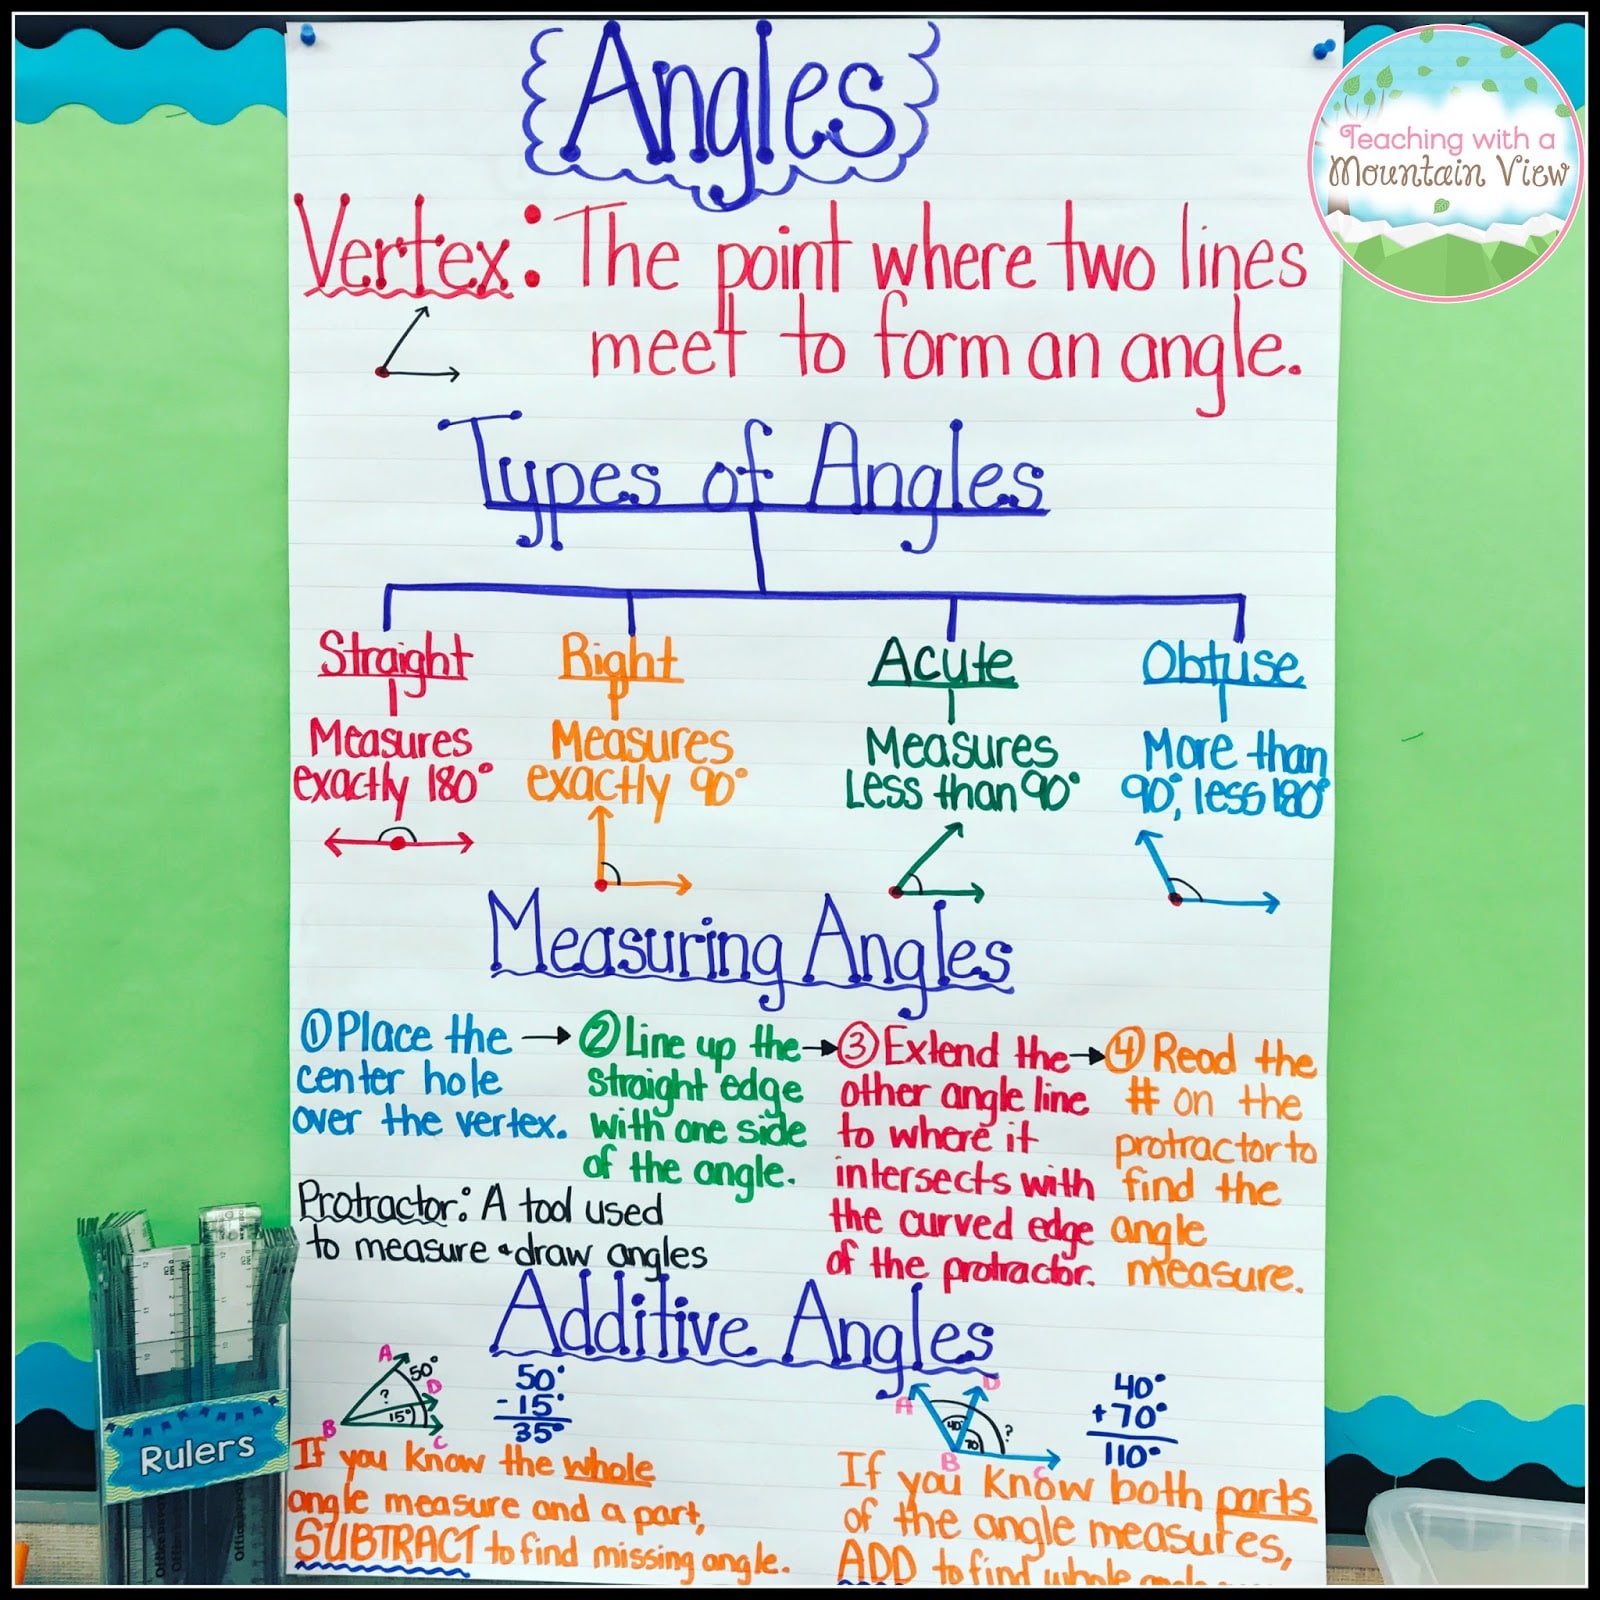 Angles
Teaching with a
Mountain View
Vertex: The point where two lines
meet to form an angle.
Types of Angles
Straight
Measures
exactly 180°
Right
Measures
exactly 90°
Acute
Measures
Less than 90°
Obtuse
More than
90°, less 180°
Measuring Angles
① Place the
center hole
over the vertex.
② Line up the
straight edge
with one side
of the angle.
③ Extend the
other angle line
to where it
intersects with
the curved edge
of the protractor.
④ Read the
# on the
protractor to
find the
angle
measure.
Protractor: A tool used
to measure + draw angles
Additive Angles
A
50°
D
?
15°
B
C
50°
- 15°
35°
If you know the whole
angle measure and a part,
SUBTRACT to find missing angle.
A
D
40°
?
70°
B
C
40°
+ 70°
110°
If you know both parts
of the angle measures,
ADD to find whole
Rulers